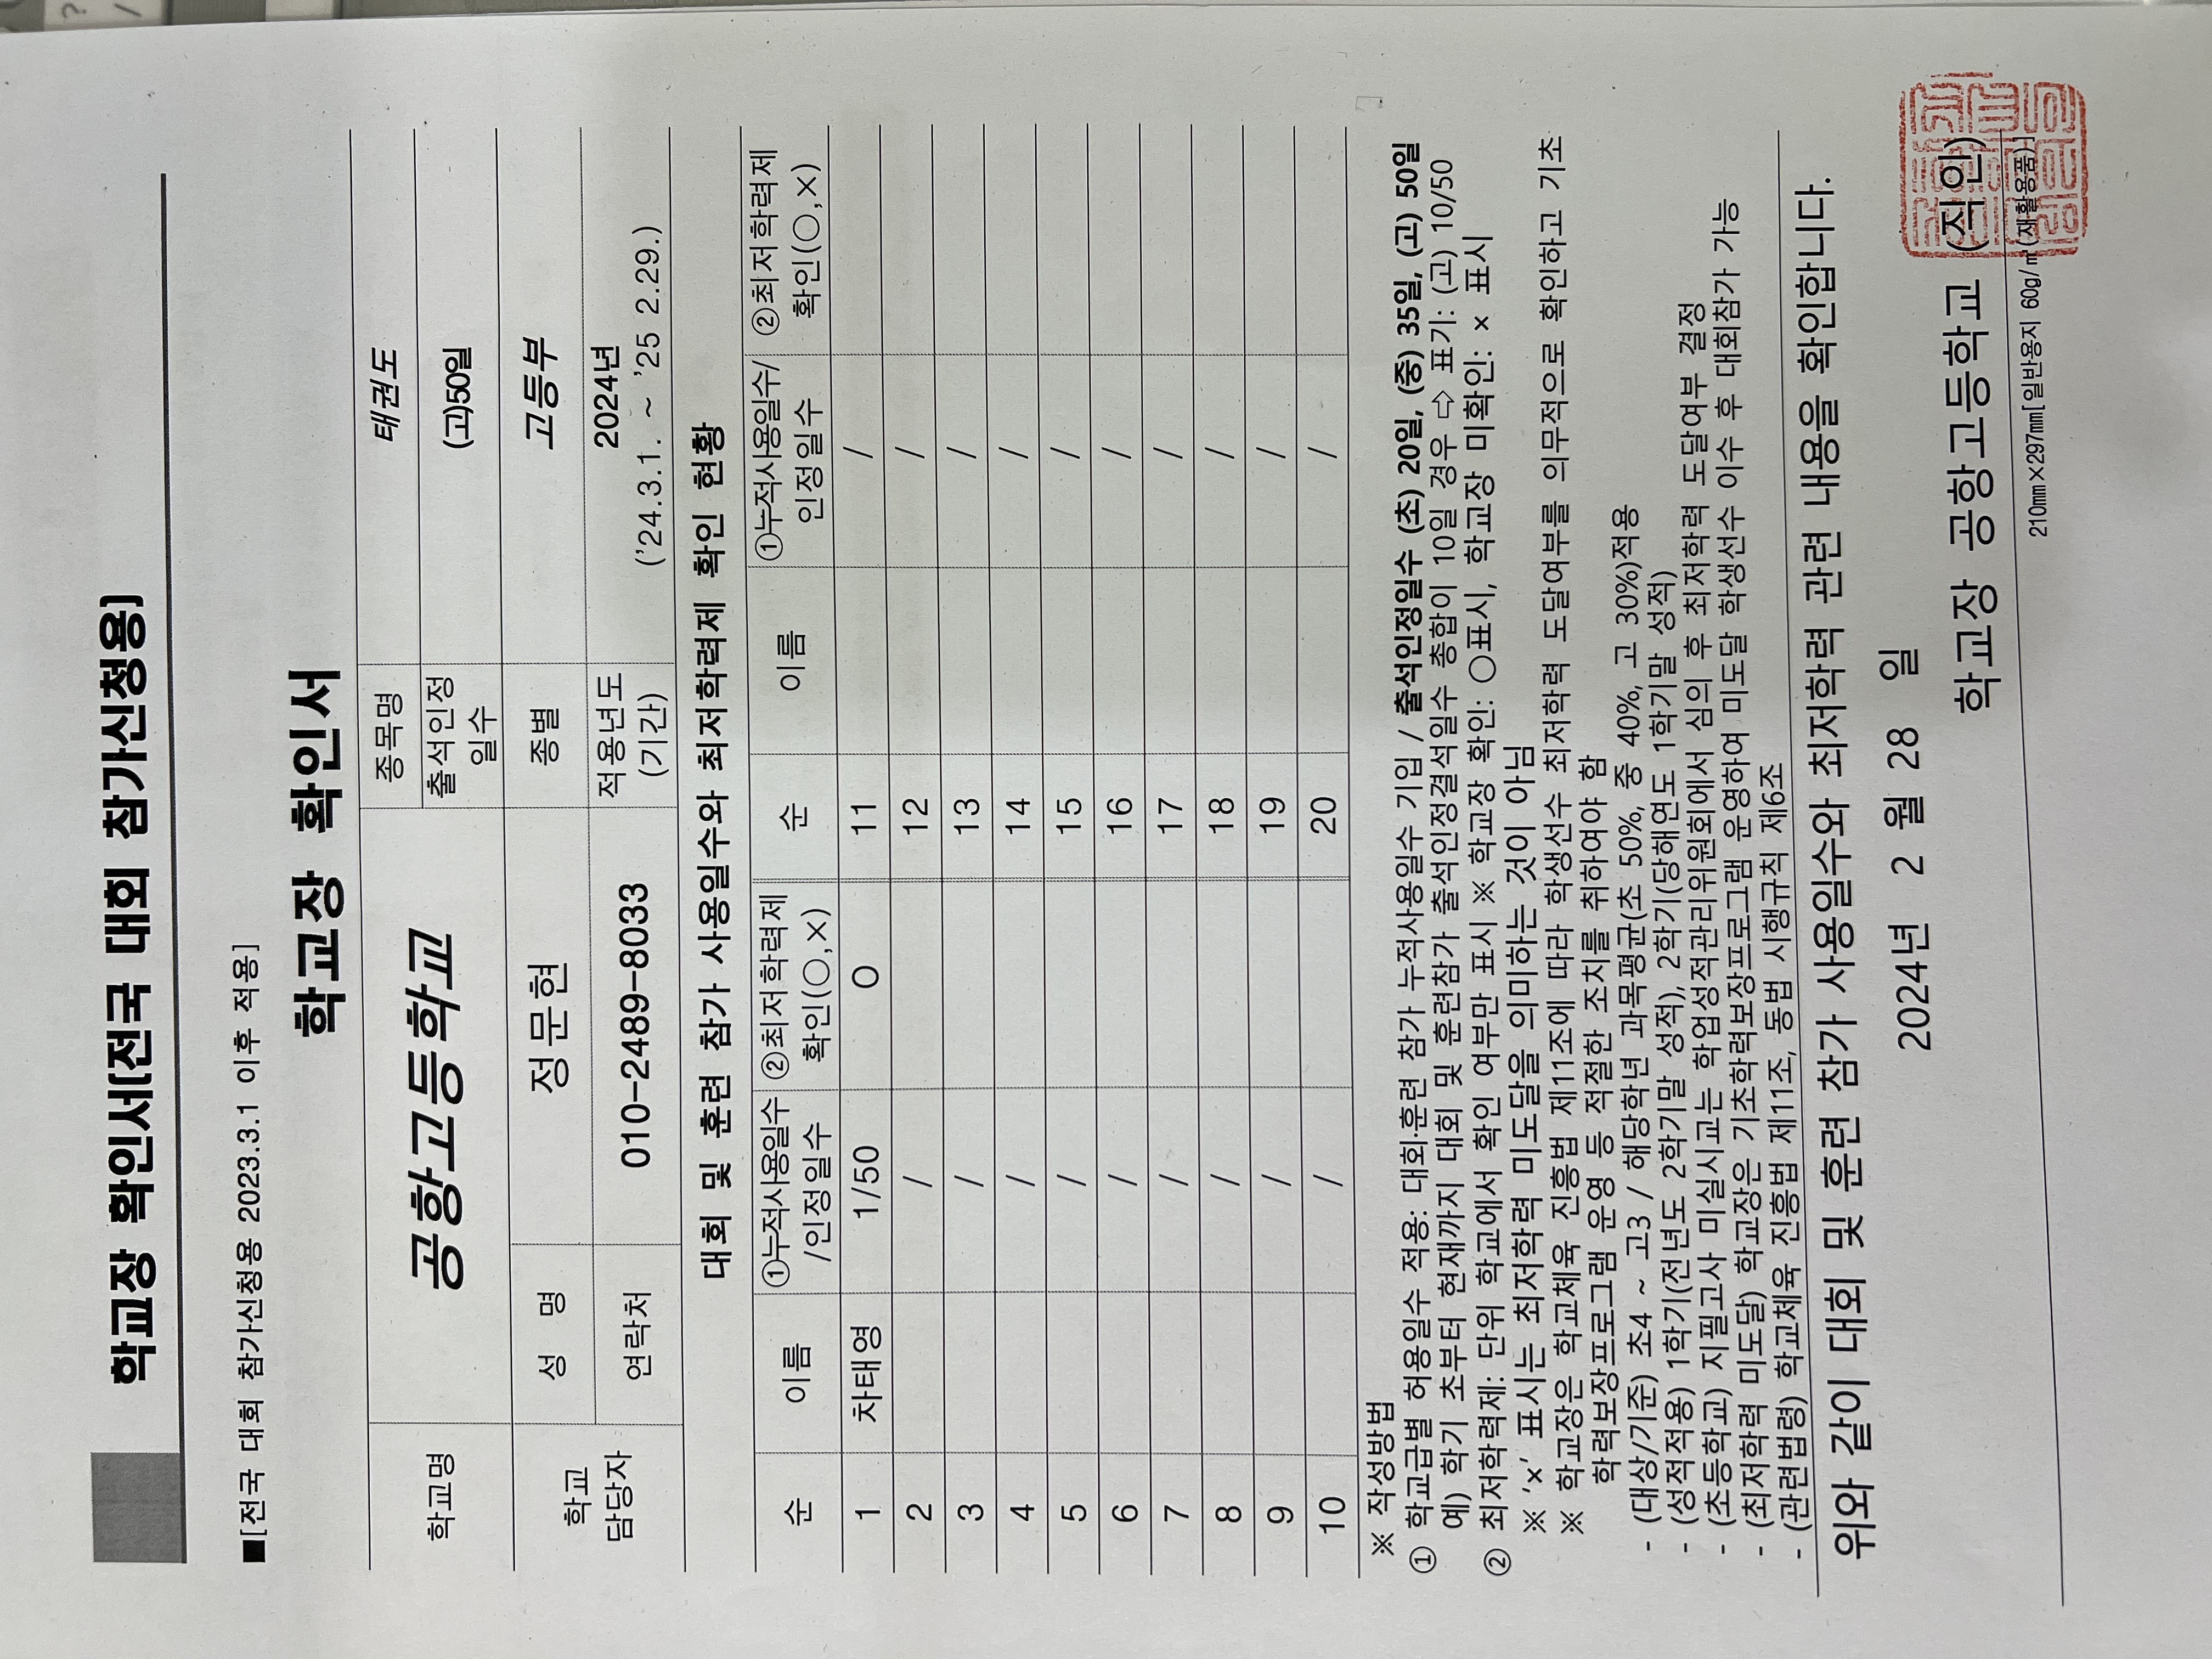 학교장 확인서(전국 대회 참가신청용)
■[전국 대회 참가신청용 2023.3.1 이후 적용]
학교장 확인서
학교명 공항고등학교 종목명 태권도
출석인정 일수 (고)50일
학교 담당자 성 명 정문현 종별 고등부
연락처 010-2489-8033 적용년도 (기간) 2024년 ('24.3.1. ~ '25 2.29.)
대회 및 훈련 참가 사용일수와 최저학력제 확인 현황
순 이름 ①누적사용일수 /인정일수 ②최저학력제 확인(○,×) 순 이름 ①누적사용일수/ 인정일수 ②최저학력제 확인(○,×)
1 차태영 1/50 O 11 /
2 / 12 /
3 / 13 /
4 / 14 /
5 / 15 /
6 / 16 /
7 / 17 /
8 / 18 /
9 / 19 /
10 / 20 /
※ 작성방법
① 학교급별 허용일수 적용: 대회·훈련 참가 누적사용일수 기입 / 출석인정일수 (초) 20일, (중) 35일, (고) 50일
예) 학기 초부터 현재까지 대회 및 훈련참가 출석인정결석일수 총합이 10일 경우 ⇨ 표기: (고) 10/50
② 최저학력제: 단위 학교에서 확인 여부만 표시 ※ 학교장 확인: ○표시, 학교장 미확인: × 표시
※ '×' 표시는 최저학력 미도달을 의미하는 것이 아님
※ 학교장은 학교체육 진흥법 제11조에 따라 학생선수 최저학력 도달여부를 의무적으로 확인하고 기초
학력보장프로그램 운영 등 적절한 조치를 취하여야 함
- (대상/기준) 초4 ~ 고3 / 해당학년 과목평균(초 50%, 중 40%, 고 30%)적용
- (성적적용) 1학기(전년도 2학기말 성적), 2학기(당해연도 1학기말 성적)
- (초등학교) 지필고사 미실시교는 학업성적관리위원회에서 심의 후 최저학력 도달여부 결정
- (최저학력 미도달) 학교장은 기초학력보장프로그램 운영하여 미도달 학생선수 이수 후 대회참가 가능
- (관련법령) 학교체육 진흥법 제11조, 동법 시행규칙 제6조
위와 같이 대회 및 훈련 참가 사용일수와 최저학력 관련 내용을 확인합니다.
2024년 2 월 28 일
학교장 공항고등학교 (직인)
210㎜×297㎜[일반용지 60g/㎡(재활용품)]